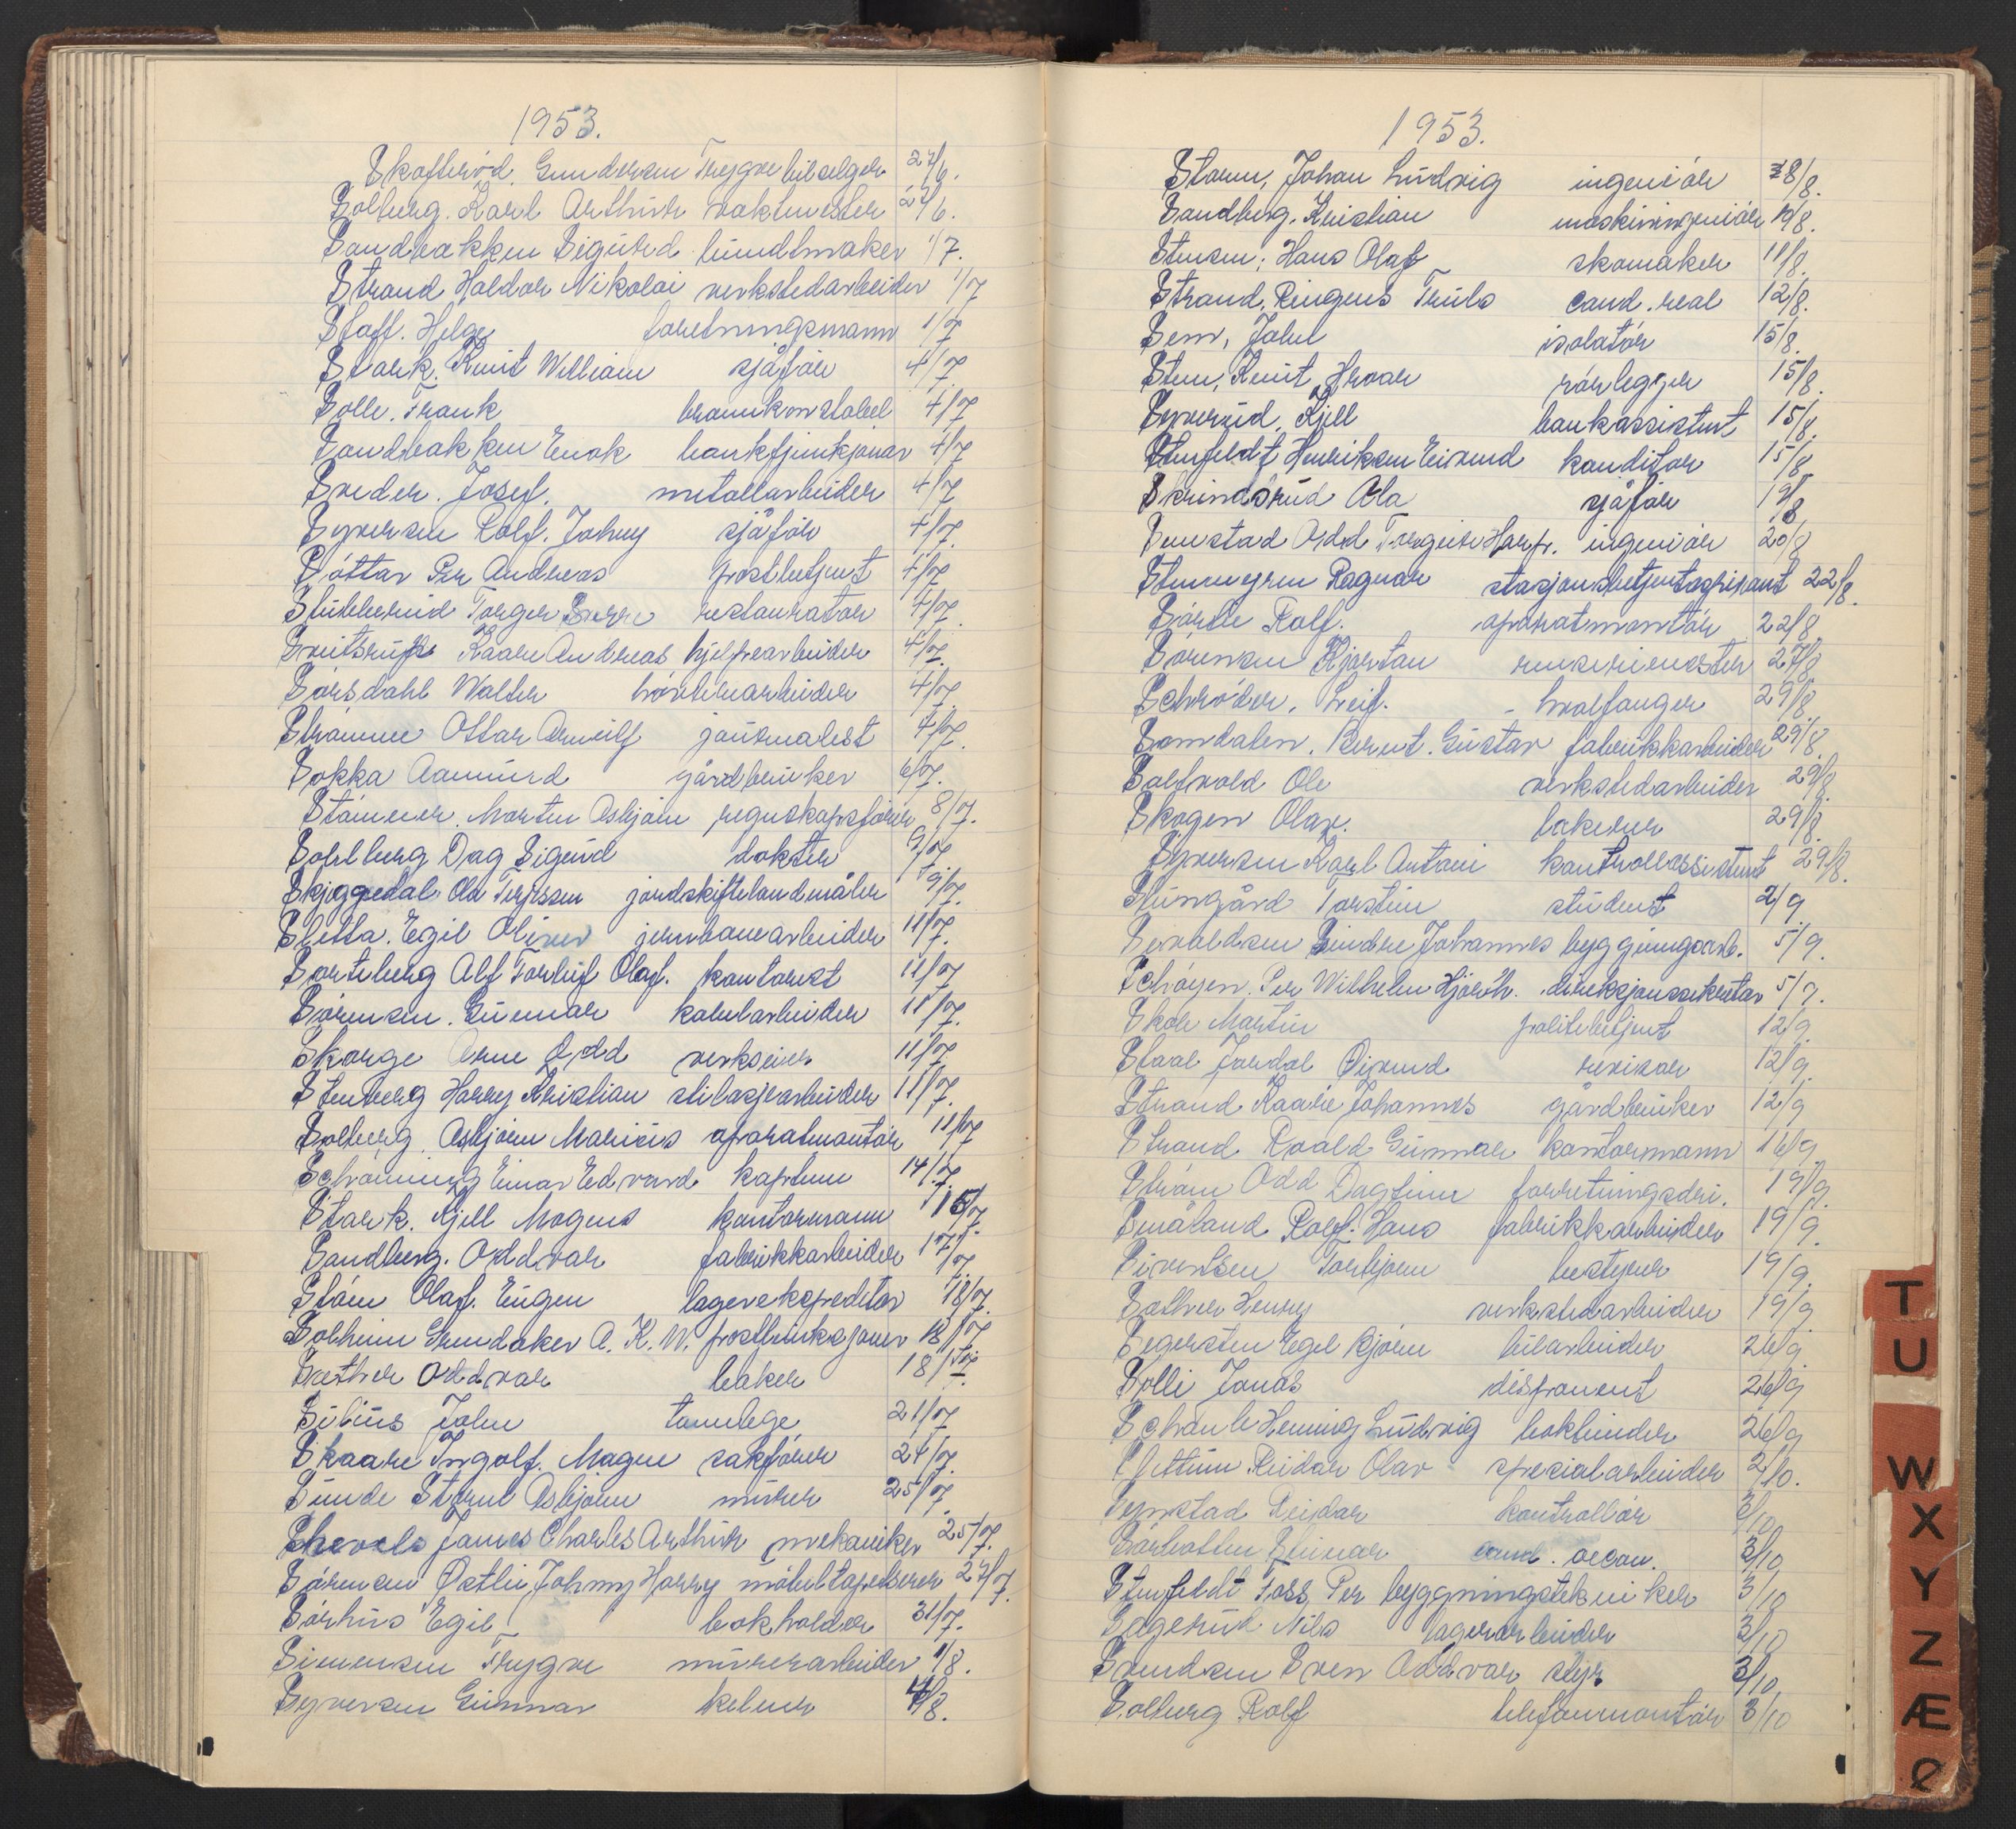 1953.
Skofterød. Gundersen Trygve bilselger 27/6.
Solberg. Karl Arthur vaktmester 27/6.
Sandbakken Sigurd bundtmaker 1/7.
Strand Haldor Nikolai verkstedarbeider 1/7
Staff. Helge forretningsmann 1/7
Stark. Knut William sjåfør 4/7
Solli. Frank brannkonstabel 4/7
Sandbakken Enok bankfunksjonær 4/7
Sreder. Josef. metallarbeider 4/7
Syversen Rolf. Johny sjåfør 4/7.
Søttar Per Andreas postbetjent 4/7
Stubberud Torger Sverre restauratør 4/7.
Kaare Andreas hjelpearbeider 4/7.
Sørsdahl Walter hårberarbeider 4/7.
Strømme Ottar Arnulf journalist 4/7.
Sokka Aamund gårdbruker 6/7.
Størmer. Martin Asbjørn regnskapsfører 8/7.
Solberg Dag Sigurd doktor 9/7.
Skjeggedal Ola Terjesen jordskiftelandmåler 9/7.
Sletta. Egil Oliver jernbanearbeider 11/7.
Sorteberg Alf Torleif Olaf. kontorist 11/7
Sørensen. Gunnar kabelarbeider 11/7.
Skorge Arne Odd verkseier 11/7.
Stenberg Harry Kristian stilasjearbeider 11/7.
Solberg. Asbjørn Marius aparatmontør 11/7
Schrøning Einar Edvard kaptein 14/7.
Stark. Kjell Mogens kontormann 15/7.
Sandberg. Oddvar fabrikkarbeider 17/7
Støen Olaf. Eugen lagerekspeditør 18/7.
Solheim Grindaker A. K. W. postfunksjonær 18/7
Sæther Oddvar baker 18/7.
Sibius John tannlege 21/7
Skaare Ingolf. Magne sakfører 24/7.
Sunde Størul Asbjørn murer 25/7.
Shevels James Charles Arthur mekaniker 25/7.
Sørensen Østlie Johnny Harry møbeltapetserer 27/7
Sørhus Egil bokholder 31/7.
Simensen Trygve murerarbeider 1/8.
Syversen Gunnar kelner 4/8.
1953.
Storm, Johan Ludvig ingeniør 8/8.
Sandberg. Kristian maskiningeniør 10/8.
Stensen, Hans Olaf skomaker 11/8.
Strand. Ringens Truls cand. real 12/8.
Sem, John isolatør 15/8.
Sten, Knut Hroar rørlegger 15/8.
Syverud, Kjell bankassistent 15/8.
Stenfeldt Henriksen Eivind konditor 15/8
Skrindsrud Ola sjåfør 19/8
Semstad Odd Torgeir Harpr. ingeniør 20/8
Stenmyren Ragnar stasjonsbetjentaspirant 22/8.
Sørlie Rolf. aparatmontør 22/8
Sørensen Kjartan renserimester 27/8
Schrøder, Leif. hvalfanger 29/8
Somdalen. Bernt. Gustav fabrikkarbeider 29/8.
Saltvold Ole verkstedarbeider 29/8.
Skogen Olav. lakerer 29/8.
Syversen Karl Antoni kontrollassistent 29/8.
Stungård Torstein student 2/9
Sevaldsen Sindre Johannes bygningsarb. 5/9.
Schøyen. Per Wilhelm Hjorth. direksjonssekretær 5/9.
Skar Martin politibetjent 12/9
Staal Jordal Øivind revisor 12/9.
Strand Kaare Johannes gårdbruker 12/9
Strand Roald Gunnar kontormann 16/9
Strøm Odd Dagfinn forretningsdri. 19/9
Småland Rolf. Hans fabrikkarbeider 19/9.
Sivertsen Torbjørn bestyrer 19/9.
Sæther Henry verkstedarbeider 19/9
Segersten Egil Bjørn bilarbeider 26/9
Solli Jonas disponent 26/9
Schaule Henning Ludvig bokbinder 26/9
Slettum Reidar Olav spesialarbeider 2/10.
Reidar kontrollør 3/10
Sørbotten Steinar cand. oecon. 3/10
Stenfeldt Foss, Per bygningstekniker 3/10
Sagerud Nils lagerarbeider 3/10
Svendsen Sven Oddvar slipr 3/10
Solberg Rolf telefonmontør 3/10
T
U
W
X
Y
Z
Æ
Ø